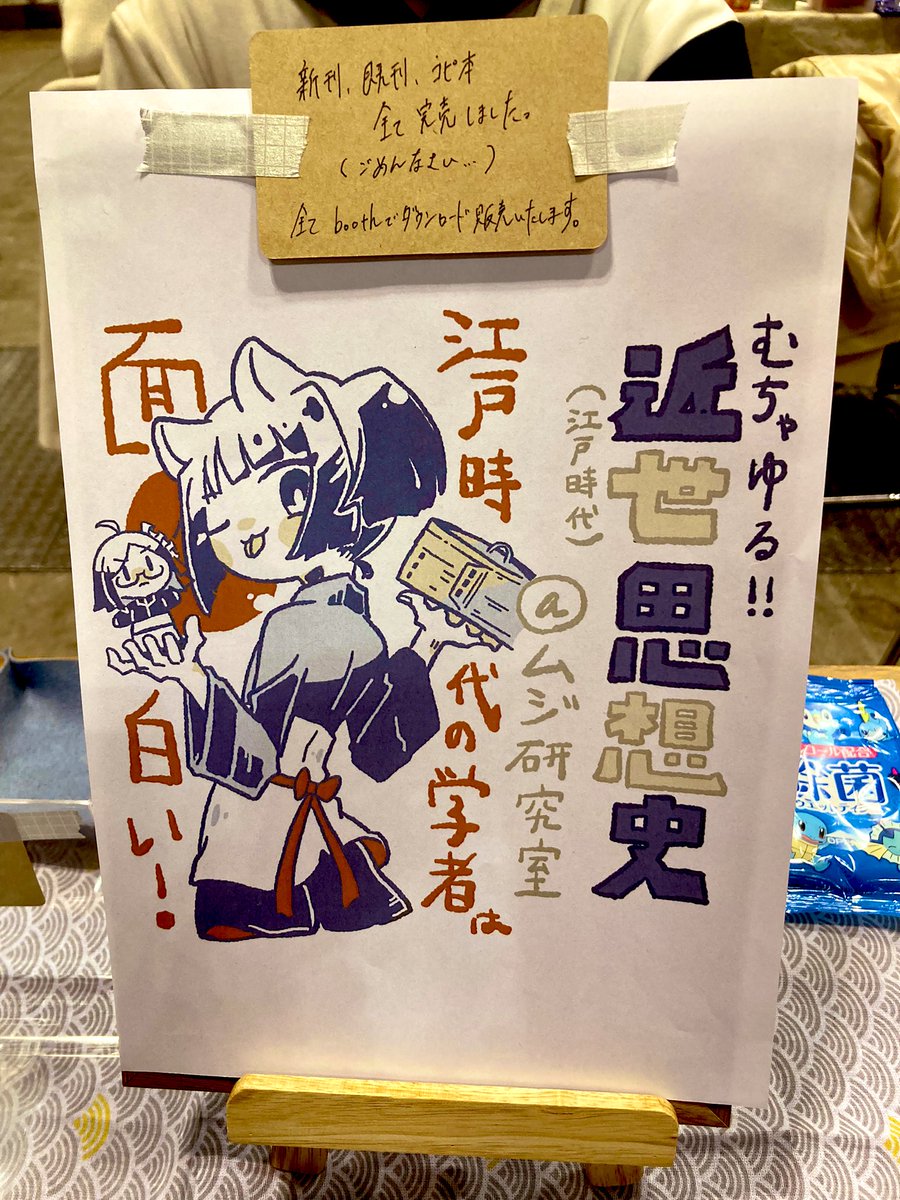 新刊、既刊、コピ本
全て完売しました。
(ごめんなさい…)
全てboothでダウンロード販売いたします。
むちゃゆる!!
近世思想史
(江戸時代)
@ムジ研究室
江戸時代の学者は
面白い!
除菌